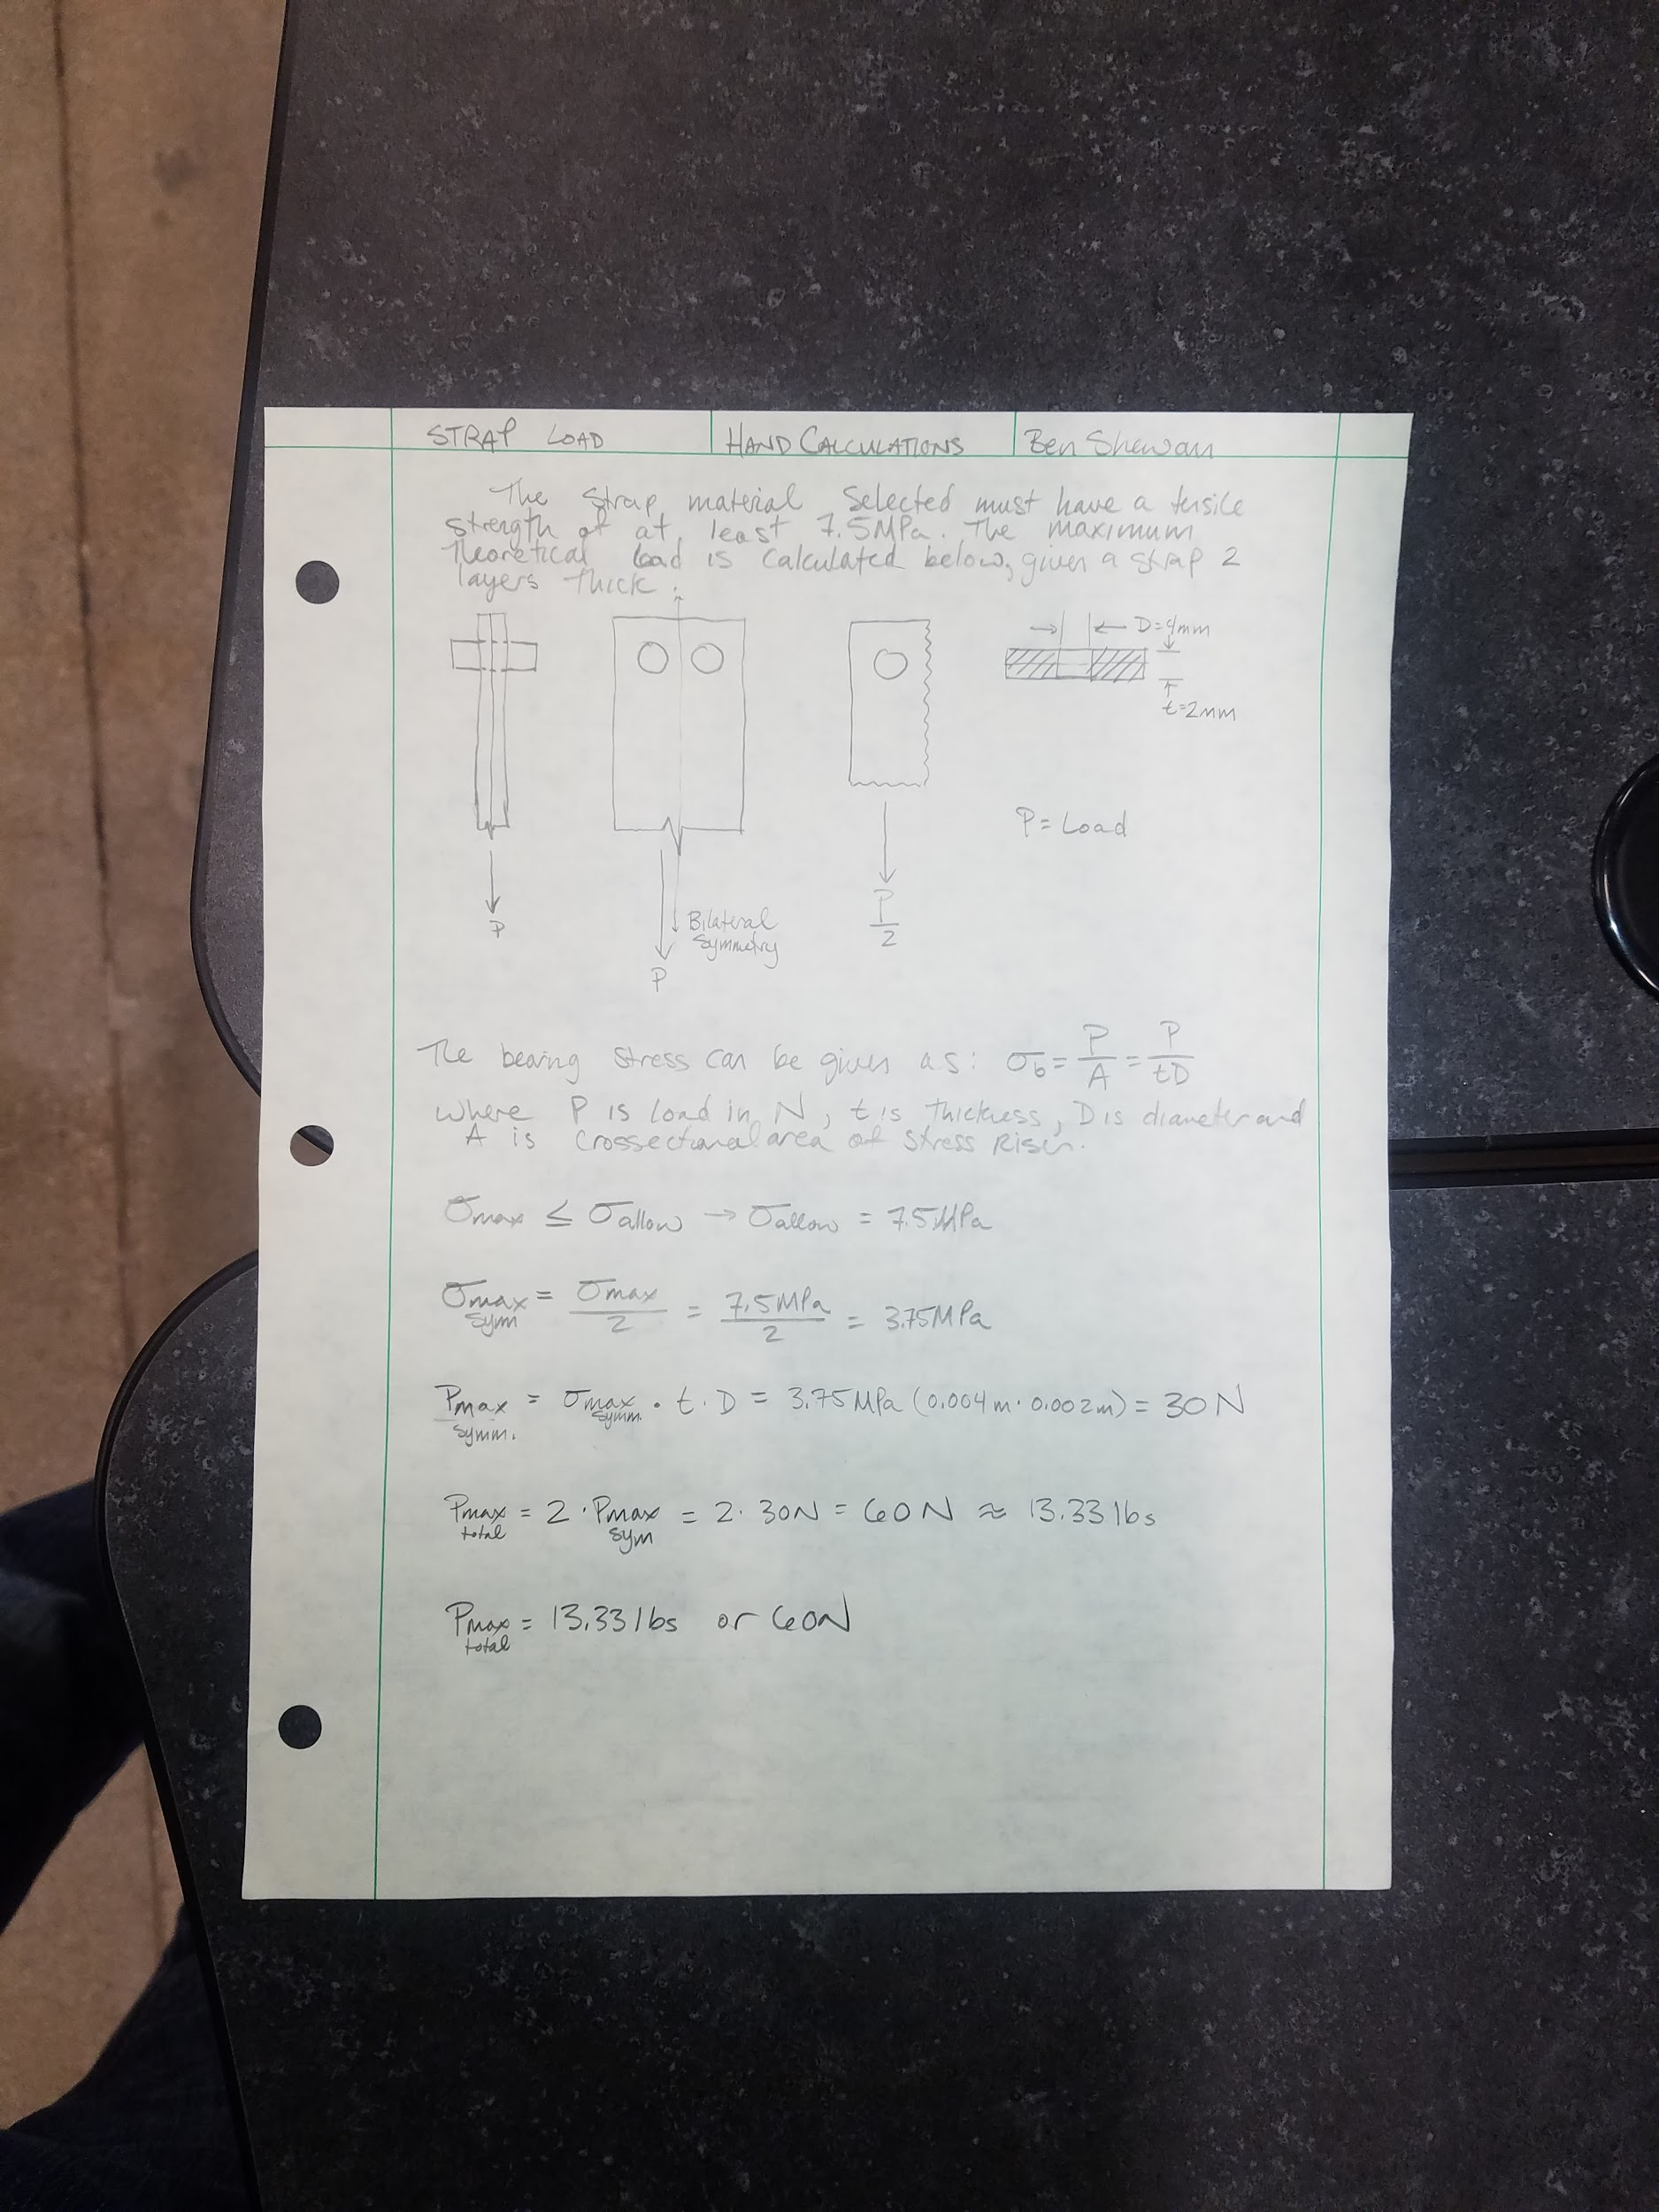 STRAP LOAD
HAND CALCULATIONS
Ben Shewan
The Strap material Selected must have a tensile
strength of at least 7.5MPa. The maximum
theoretical load is calculated below, given a strap 2
layers thick:
D=4mm
t=2mm
P=Load
P
Bilateral
Symmetry
P
P/2
The bearing stress can be given as: σb = P/A = P/tD
where P is load in N, t is thickness, D is diameter and
A is Crossectional area of Stress Riser.
σmax ≤ σallow → σallow = 7.5MPa
σmax symm = σmax/2 = 7.5MPa/2 = 3.75MPa
Pmax symm. = σmax symm. · t · D = 3.75MPa (0.004m · 0.002m) = 30N
Pmax total = 2 · Pmax sym = 2 · 30N = 60N ≈ 13.33 lbs
Pmax total = 13.33 lbs or 60N